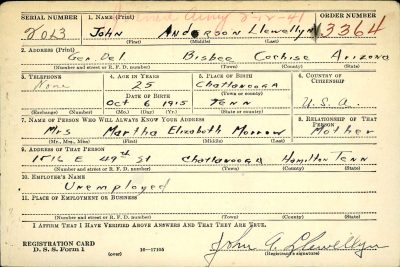 SERIAL NUMBER 1. NAME (Print) ORDER NUMBER
Army 2-12-41
2023 John Anderson Llewellyn 3364
(First) (Middle) (Last)
2. ADDRESS (Print)
Gen. Del Bisbee Cochise Arizona
(Number and street or R. F. D. number) (Town) (County) (State)
3. TELEPHONE 4. AGE IN YEARS 5. PLACE OF BIRTH 6. COUNTRY OF CITIZENSHIP
None 25 Chattanooga
DATE OF BIRTH (Town or county)
Oct 6 1915 Tenn U.S.A.
(Exchange) (Number) (Mo.) (Day) (Yr.) (State or country)
7. NAME OF PERSON WHO WILL ALWAYS KNOW YOUR ADDRESS 8. RELATIONSHIP OF THAT PERSON
Mrs Martha Elizabeth Morrow Mother
(Mr., Mrs., Miss) (First) (Middle) (Last)
9. ADDRESS OF THAT PERSON
1516 E 49th St Chattanooga Hamilton Tenn
(Number and street or R. F. D. number) (Town) (County) (State)
10. EMPLOYER'S NAME
Unemployed
11. PLACE OF EMPLOYMENT OR BUSINESS
(Number and street or R. F. D. number) (Town) (County) (State)
I AFFIRM THAT I HAVE VERIFIED ABOVE ANSWERS AND THAT THEY ARE TRUE.
REGISTRATION CARD
D. S. S. Form 1 (over) 16-17105
John A. Llewellyn
(Registrant's signature)